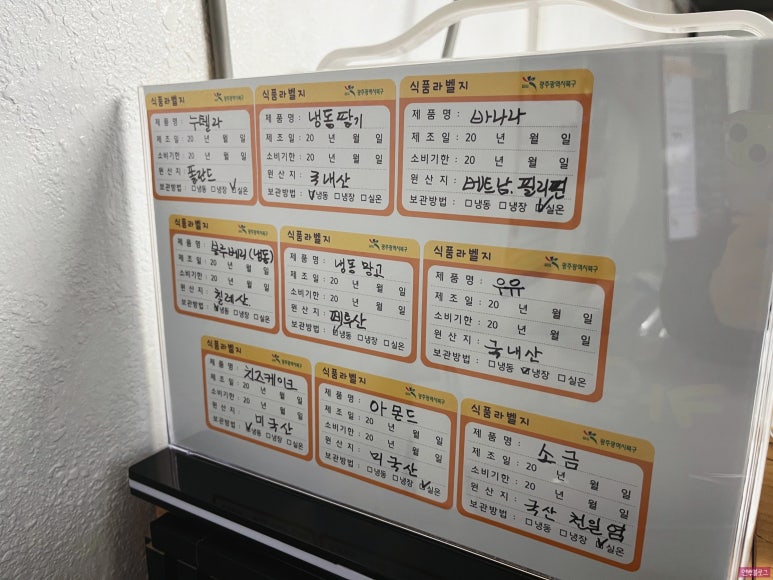 식품라벨지 광주광역시북구
제품명: 누텔라
제조일: 20 년 월 일
소비기한: 20 년 월 일
원산지: 폴란드
보관방법: □냉동 □냉장 ☑실온
식품라벨지 광주광역시북구
제품명: 냉동딸기
제조일: 20 년 월 일
소비기한: 20 년 월 일
원산지: 국내산
보관방법: ☑냉동 □냉장 □실온
식품라벨지 광주광역시북구
제품명: 바나나
제조일: 20 년 월 일
소비기한: 20 년 월 일
원산지: 베트남.필리핀
보관방법: □냉동 □냉장 ☑실온
식품라벨지 광주광역시북구
제품명: 블루베리(냉동)
제조일: 20 년 월 일
소비기한: 20 년 월 일
원산지: 칠레산
보관방법: ☑냉동 □냉장 □실온
식품라벨지 광주광역시북구
제품명: 냉동망고
제조일: 20 년 월 일
소비기한: 20 년 월 일
원산지: 페루산
보관방법: ☑냉동 □냉장 □실온
식품라벨지 광주광역시북구
제품명: 우유
제조일: 20 년 월 일
소비기한: 20 년 월 일
원산지: 국내산
보관방법: □냉동 ☑냉장 □실온
식품라벨지 광주광역시북구
제품명: 치즈케이크
제조일: 20 년 월 일
소비기한: 20 년 월 일
원산지: 미국산
보관방법: ☑냉동 □냉장 □실온
식품라벨지 광주광역시북구
제품명: 아몬드
제조일: 20 년 월 일
소비기한: 20 년 월 일
원산지: 미국산
보관방법: □냉동 □냉장 ☑실온
식품라벨지 광주광역시북구
제품명: 소금
제조일: 20 년 월 일
소비기한: 20 년 월 일
원산지: 국산 천일염
보관방법: □냉동 □냉장 ☑실온